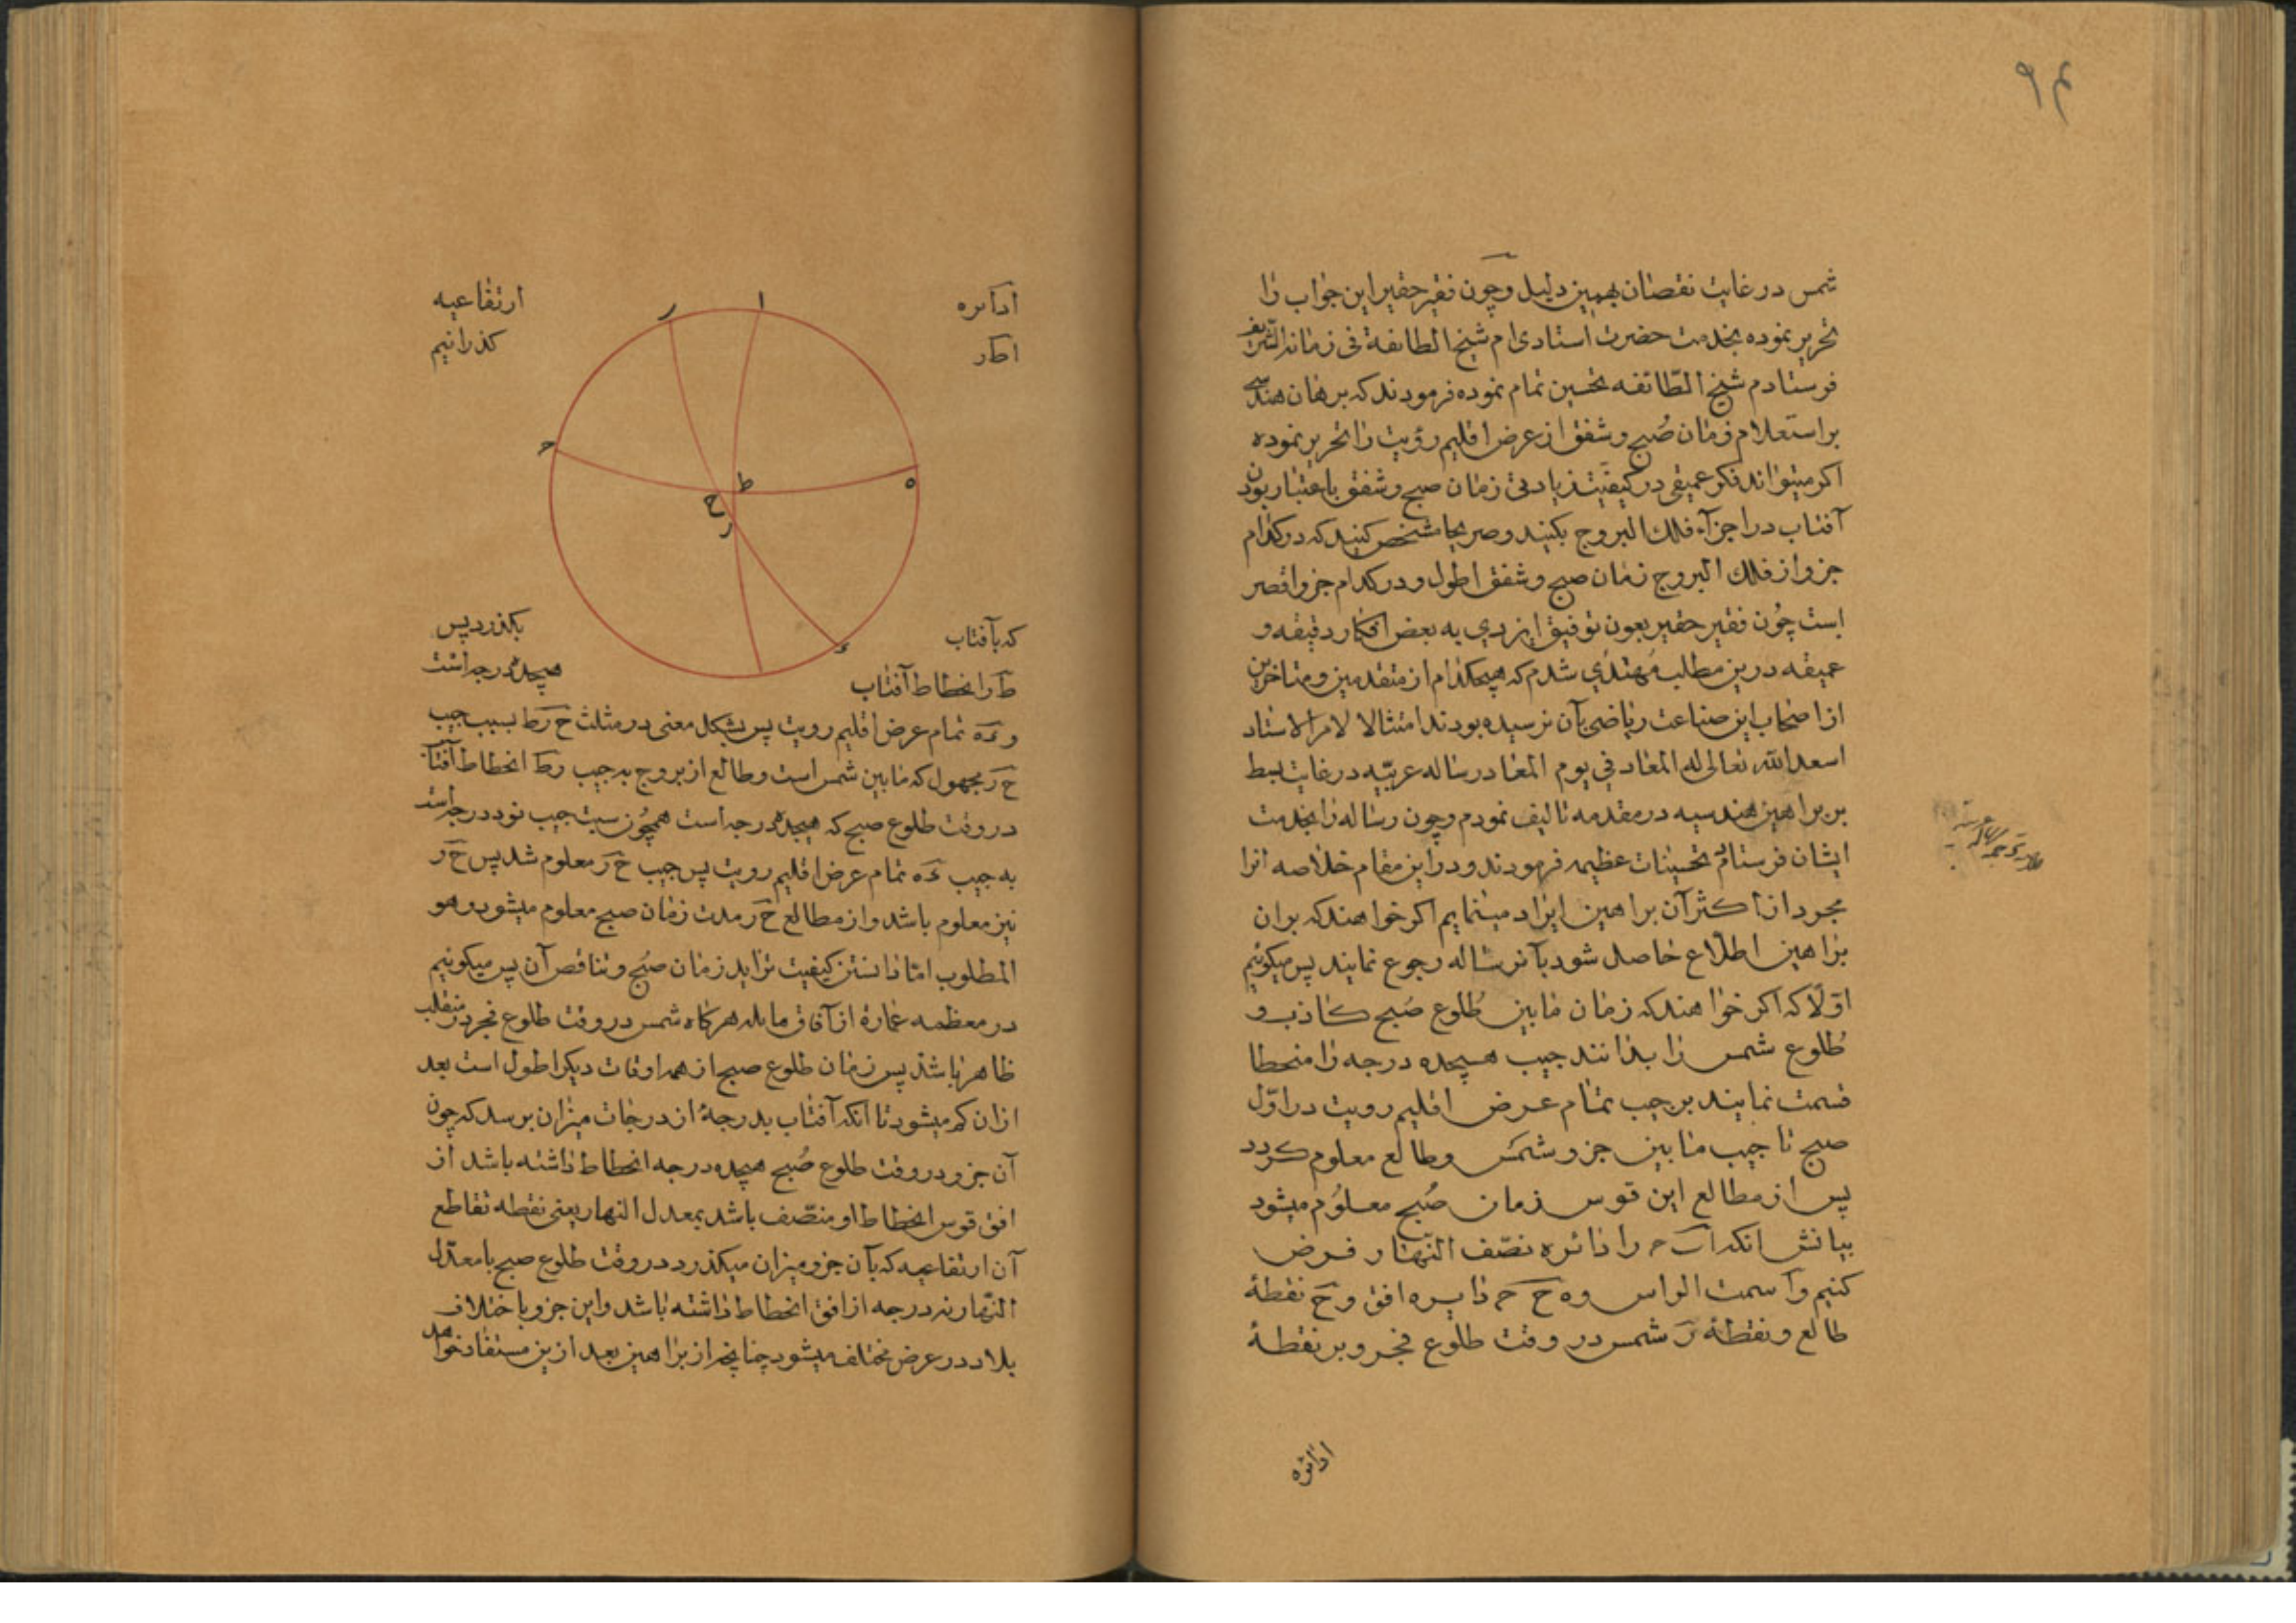 ۹۴
شمس در غایت نقصان بهمین دلیل و چون فقیر حقیر این جواب را
تحریر نموده بخدمت حضرت استادی ام شیخ الطائفة فی زمانه الشریف
فرستادم شیخ الطّائفه تحسین تمام نموده فرمودند که برهان هندسی
بر استعلام زمان صُبح و شفق از عرض اقلیم رؤیت را تحریر نموده
اکر میتواند فکر عمیقی در کیفیّت زیادتی زمان صبح و شفق باعتبار بودن
آفتاب در اجزآء فلك البروج بکنند و صریحا مشخص کنند که در کدام
جزو از فلك البروج زمان صبح و شفق اطول و در کدام جزو اقصر
است چُون فقیر حقیر بعون توفیق ایزدي به بعض افکار دقیقه و
عمیقه درین مطلب مهتدي شدم که هیچکدام از متقدمین و متاخرین
از اصحاب این صناعت ریاضی بآن نرسیده بودند امتثالا لامر الاستاد
اسعد الله تعالی له المعاد في یوم المعاد رساله عربیّه در غایت بسط
بر براهین هندسیه در مقدمه تالیف نمودم و چون رساله را بخدمت
ایشان فرستادم تحسینات عظیمه فرمودند و در این مقام خلاصه آنرا
مجرد از اکثر آن براهین ایراد مینمایم اکر خواهند که بران
براهین اطلّاع حاصل شود بآن رساله رجوع نمایند پس میکوئیم
اوّلاً که اکر خواهند که زمان مابین طُلوع صُبح کاذب و
طُلوع شمس را بدانند جیب هیجده درجه را منحطا
قسمت نمایند بر جیب تمام عرض اقلیم رویت در اوّل
صبح تا جیب مابین جزو شمس و طالع معلوم کردد
پس از مطالع این قوس زمان صُبح معلوُم میشود
بیانش انکه ا ح را دائره نصّف النّهار فرض
کنیم و آ سمت الراس و ه ح ح دایره افق و ح نقطهٔ
طالع و نقطهٔ ر شمس در وقت طلوع فجر و بر نقطهٔ
ادائره
ادائره ارتفاعیه
اطر کذرانیم
ا
ر
ح
ط
ه
ح
ر
ء
که بآفتاب بکذرد پس
ط ر انحطاط آفتاب هیجده درجه است
و ءه تمام عرض اقلیم رویت پس بشکل مغنی در مثلث ح ر ط بسبب جیب
ح ر مجهول که مابین شمس است و طالع از بروج به جیب ر ط انحطاط آفتاب
در وقت طلوع صبح که هیجده درجه است همچُون سبت جیب نود درجه است
به جیب ءه تمام عرض اقلیم رویت پس جیب ح ر معلوم شد پس ح ر
نیز معلوم باشد و از مطالع ح ر مدت زمان صبح معلوم میشود و هو
المطلوب امّا دانستن کیفیت تزاید زمان صبح و تناقص آن پس میکوئیم
در معظمه عمارهٔ از آفاق مایله هرکاه شمس در وقت طلوع فجر در منقلب
ظاهر باشد پس زمان طلوع صبح از همه اوقات دیکر اطول است بعد
ازان کم میشود تا انکه آفتاب بدرجهٔ از درجات میزان برسد که چون
آن جزو در وقت طلوع صُبح هیجده درجه انحطاط داشته باشد از
افق قوس انحطاط او منصّف باشد بمعدل النهار یعنی نقطه تقاطع
آن ارتفاعیه که بآن جزو میزان میکذرد در وقت طلوع صبح با معدّل
النّهار نه درجه از افق انحطاط داشته باشد و این جزو باختلاف
بلاد در عرض مختلف میشود چنانچه از براهین بعد ازین مستفاد خواهد